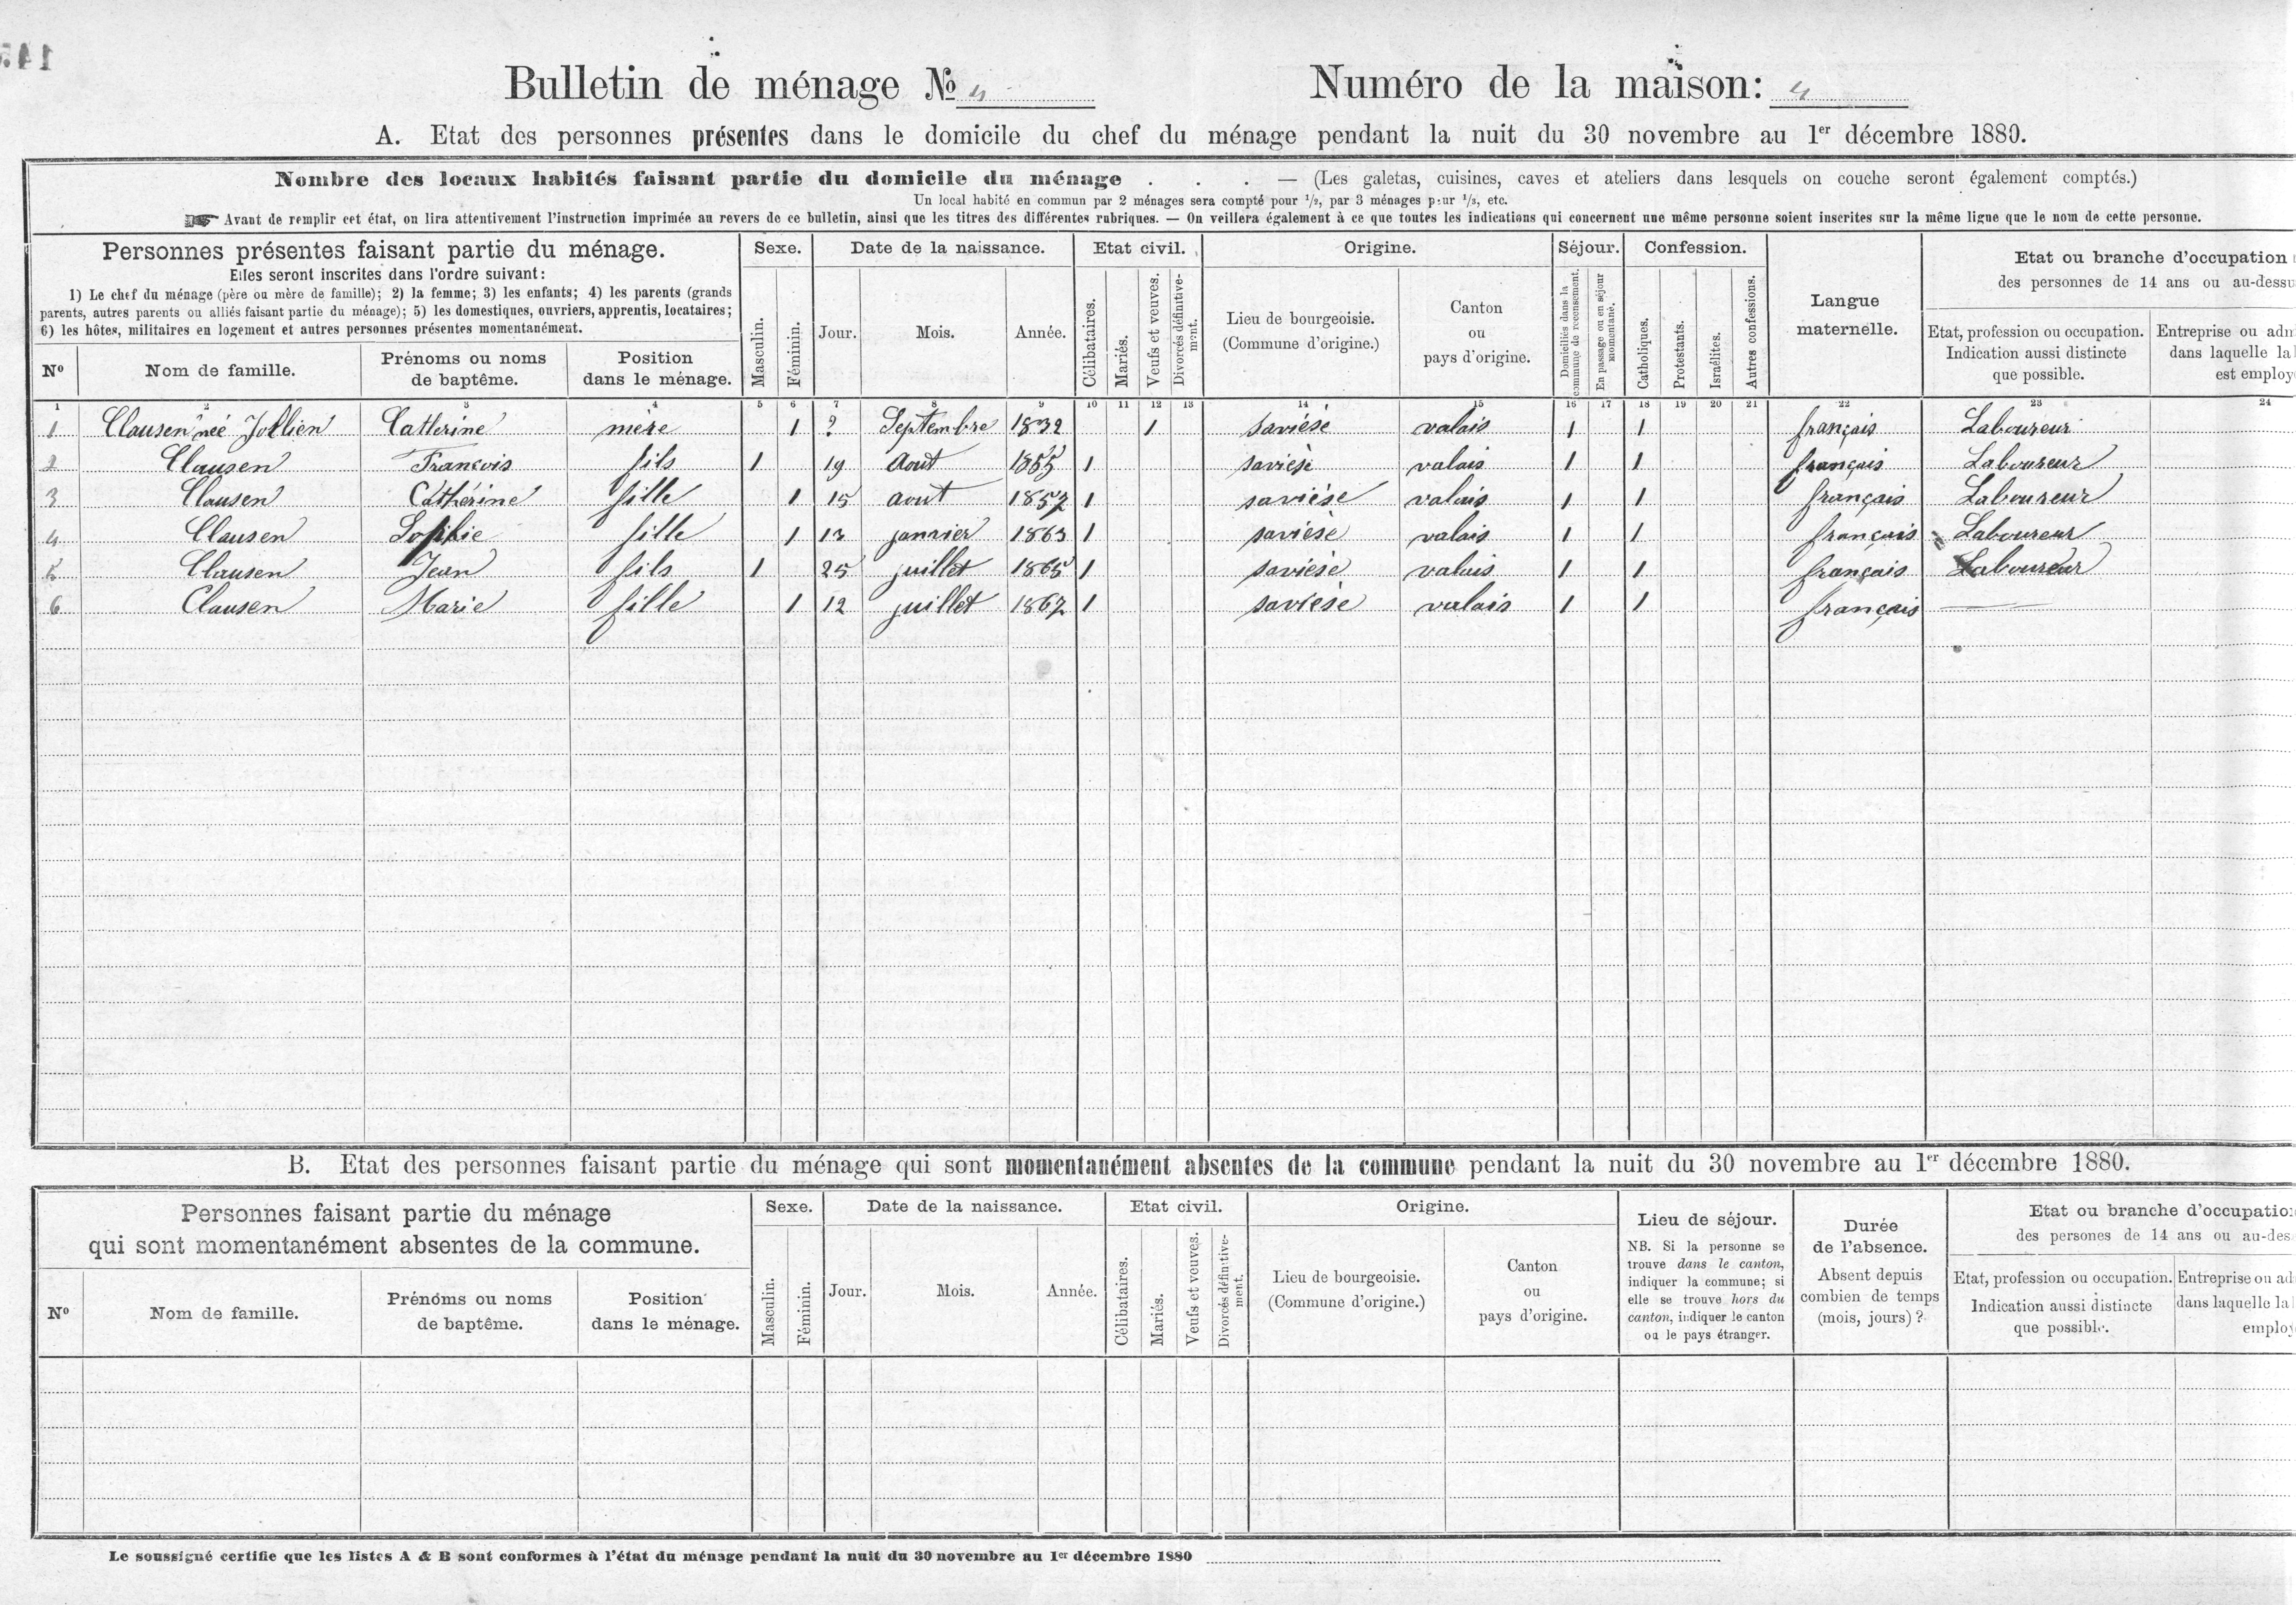 145
Bulletin de ménage № 4
Numéro de la maison: 4
A. Etat des personnes présentes dans le domicile du chef du ménage pendant la nuit du 30 novembre au 1er décembre 1880.
Nombre des locaux habités faisant partie du domicile du ménage . . . — (Les galetas, cuisines, caves et ateliers dans lesquels on couche seront également comptés.)
Un local habité en commun par 2 ménages sera compté pour 1/2, par 3 ménages pour 1/3, etc.
Avant de remplir cet état, on lira attentivement l'instruction imprimée au revers de ce bulletin, ainsi que les titres des différentes rubriques. — On veillera également à ce que toutes les indications qui concernent une même personne soient inscrites sur la même ligne que le nom de cette personne.
Personnes présentes faisant partie du ménage.
Elles seront inscrites dans l'ordre suivant:
1) Le chef du ménage (père ou mère de famille); 2) la femme; 3) les enfants; 4) les parents (grands
parents, autres parents ou alliés faisant partie du ménage); 5) les domestiques, ouvriers, apprentis, locataires;
6) les hôtes, militaires en logement et autres personnes présentes momentanément.
Nº
Nom de famille.
Prénoms ou noms
de baptême.
Position
dans le ménage.
Sexe.
Masculin.
Féminin.
Date de la naissance.
Jour.
Mois.
Année.
Etat civil.
Célibataires.
Mariés.
Veufs et veuves.
Divorcés définitive-
ment.
Origine.
Lieu de bourgeoisie.
(Commune d'origine.)
Canton
ou
pays d'origine.
Séjour.
Domiciliés dans la
commune de recensement.
En passage ou en séjour
momentané.
Confession.
Catholiques.
Protestants.
Israélites.
Autres confessions.
Langue
maternelle.
Etat ou branche d'occupation
des personnes de 14 ans ou au-dessu
Etat, profession ou occupation.
Indication aussi distincte
que possible.
Entreprise ou adm
dans laquelle la
est employ
1 2 3 4 5 6 7 8 9 10 11 12 13 14 15 16 17 18 19 20 21 22 23 24
1 Clausen née Jollien Catherine mère 1 ? Septembre 1832 1 savièse valais 1 1 français Laboureur
2 Clausen François fils 1 19 Aout 1855 1 savièse valais 1 1 français Laboureur
3 Clausen Cathérine fille 1 15 aout 1857 1 savièse valais 1 1 français Laboureur
4 Clausen Sophie fille 1 13 janvier 1863 1 savièse valais 1 1 français Laboureur
5 Clausen Jean fils 1 25 juillet 1865 1 savièse valais 1 1 français Laboureur
6 Clausen Marie fille 1 12 juillet 1867 1 savièse valais 1 1 français —
B. Etat des personnes faisant partie du ménage qui sont momentanément absentes de la commune pendant la nuit du 30 novembre au 1er décembre 1880.
Personnes faisant partie du ménage
qui sont momentanément absentes de la commune.
Nº
Nom de famille.
Prénoms ou noms
de baptême.
Position
dans le ménage.
Sexe.
Masculin.
Féminin.
Date de la naissance.
Jour.
Mois.
Année.
Etat civil.
Célibataires.
Mariés.
Veufs et veuves.
Divorcés définitive-
ment.
Origine.
Lieu de bourgeoisie.
(Commune d'origine.)
Canton
ou
pays d'origine.
Lieu de séjour.
NB. Si la personne se
trouve dans le canton,
indiquer la commune; si
elle se trouve hors du
canton, indiquer le canton
ou le pays étranger.
Durée
de l'absence.
Absent depuis
combien de temps
(mois, jours)?
Etat ou branche d'occupation
des persones de 14 ans ou au-des
Etat, profession ou occupation.
Indication aussi distincte
que possible.
Entreprise ou ad
dans laquelle la
employ
Le soussigné certifie que les listes A & B sont conformes à l'état du ménage pendant la nuit du 30 novembre au 1er décembre 1880